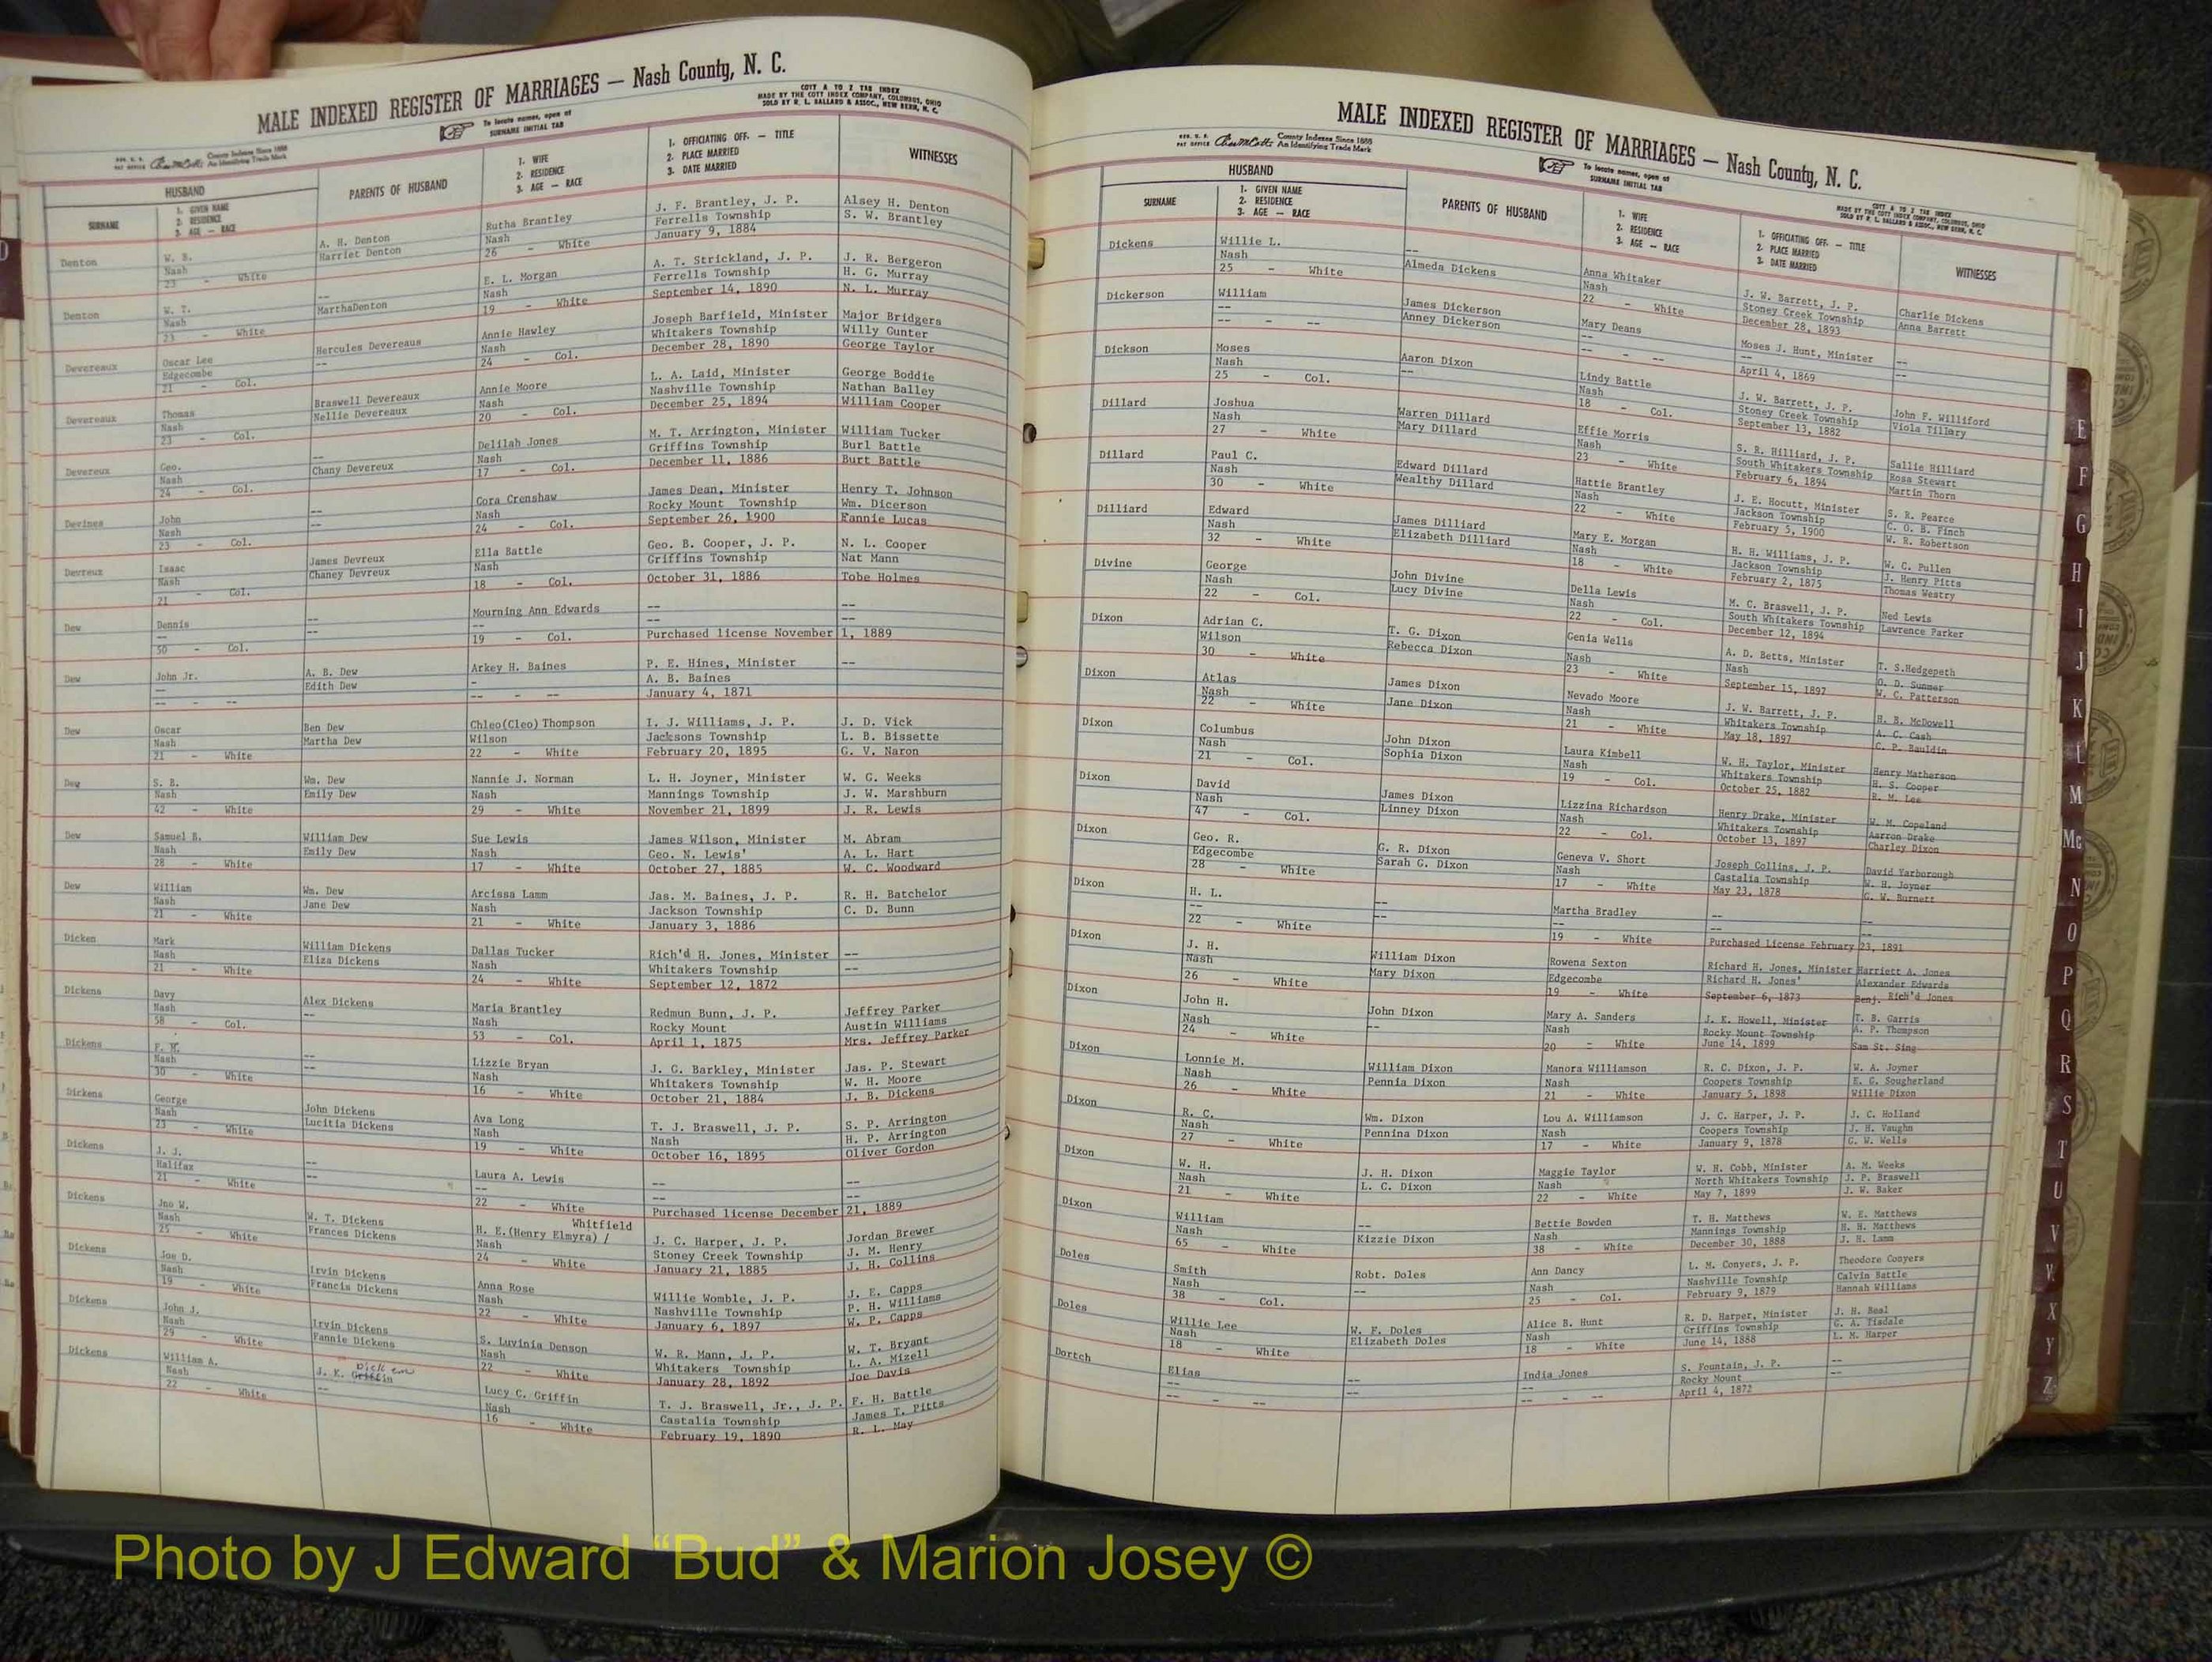 MALE INDEXED REGISTER OF MARRIAGES — Nash County, N. C.
To locate names, open at
SURNAME INITIAL TAB
COTT A TO Z TAB INDEX
MADE BY THE COTT INDEX COMPANY, COLUMBUS, OHIO
SOLD BY R. L. BALLARD & ASSOC., NEW BERN, N. C.
County Indexes Since 1888
An Identifying Trade Mark
HUSBAND
SURNAME
1. GIVEN NAME
2. RESIDENCE
3. AGE — RACE
PARENTS OF HUSBAND
1. WIFE
2. RESIDENCE
3. AGE — RACE
1. OFFICIATING OFF. — TITLE
2. PLACE MARRIED
3. DATE MARRIED
WITNESSES
Denton W. B. A. H. Denton Rutha Brantley J. F. Brantley, J. P. Alsey H. Denton
Nash Harriet Denton Nash Ferrells Township S. W. Brantley
23 - White 26 - White January 9, 1884
Denton W. T. -- E. L. Morgan A. T. Strickland, J. P. J. R. Bergeron
Nash MarthaDenton Nash Ferrells Township H. G. Murray
23 - White 19 - White September 14, 1890 N. L. Murray
Devereaux Oscar Lee Hercules Devereaus Annie Hawley Joseph Barfield, Minister Major Bridgers
Edgecombe -- Nash Whitakers Township Willy Gunter
21 - Col. 24 - Col. December 28, 1890 George Taylor
Devereaux Thomas Braswell Devereaux Annie Moore L. A. Laid, Minister George Boddie
Nash Nellie Devereaux Nash Nashville Township Nathan Balley
23 - Col. 20 - Col. December 25, 1894 William Cooper
Devereux Geo. -- Delilah Jones M. T. Arrington, Minister William Tucker
Nash Chany Devereux Nash Griffins Township Burl Battle
24 - Col. 17 - Col. December 11, 1886 Burt Battle
Devines John -- Cora Crenshaw James Dean, Minister Henry T. Johnson
Nash -- Nash Rocky Mount Township Wm. Dicerson
23 - Col. 24 - Col. September 26, 1900 Fannie Lucas
Devreux Isaac James Devreux Ella Battle Geo. B. Cooper, J. P. N. L. Cooper
Nash Chaney Devreux Nash Griffins Township Nat Mann
21 - Col. 18 - Col. October 31, 1886 Tobe Holmes
Dew Dennis -- Mourning Ann Edwards -- --
-- -- -- -- --
50 - Col. 19 - Col. Purchased license November 1, 1889
Dew John Jr. A. B. Dew Arkey H. Baines P. E. Hines, Minister --
-- Edith Dew - A. B. Baines
-- - -- -- - -- January 4, 1871
Dew Oscar Ben Dew Chleo(Cleo) Thompson I. J. Williams, J. P. J. D. Vick
Nash Martha Dew Wilson Jacksons Township L. B. Bissette
21 - White 22 - White February 20, 1895 G. V. Naron
Dew S. B. Wm. Dew Nannie J. Norman L. H. Joyner, Minister W. G. Weeks
Nash Emily Dew Nash Mannings Township J. W. Marshburn
42 - White 29 - White November 21, 1899 J. R. Lewis
Dew Samuel B. William Dew Sue Lewis James Wilson, Minister M. Abram
Nash Emily Dew Nash Geo. N. Lewis' A. L. Hart
28 - White 17 - White October 27, 1885 W. C. Woodward
Dew William Wm. Dew Arcissa Lamm Jas. M. Baines, J. P. R. H. Batchelor
Nash Jane Dew Nash Jackson Township C. D. Bunn
21 - White 21 - White January 3, 1886
Dicken Mark William Dickens Dallas Tucker Rich'd H. Jones, Minister --
Nash Eliza Dickens Nash Whitakers Township --
21 - White 24 - White September 12, 1872
Dickens Davy Alex Dickens Maria Brantley Redmun Bunn, J. P. Jeffrey Parker
Nash -- Nash Rocky Mount Austin Williams
58 - Col. 53 - Col. April 1, 1875 Mrs. Jeffrey Parker
Dickens F. M. -- Lizzie Bryan J. G. Barkley, Minister Jas. P. Stewart
Nash -- Nash Whitakers Township W. H. Moore
30 - White 16 - White October 21, 1884 J. B. Dickens
Dickens George John Dickens Ava Long T. J. Braswell, J. P. S. P. Arrington
Nash Lucitia Dickens Nash Nash H. P. Arrington
23 - White 19 - White October 16, 1895 Oliver Gordon
Dickens J. J. -- Laura A. Lewis -- --
Halifax -- -- --
21 - White 22 - White Purchased license December 21, 1889
Dickens Jno W. W. T. Dickens H. E.(Henry Elmyra) / Whitfield J. C. Harper, J. P. Jordan Brewer
Nash Frances Dickens Nash Stoney Creek Township J. M. Henry
25 - White 24 - White January 21, 1885 J. H. Collins
Dickens Joe D. Irvin Dickens Anna Rose Willie Womble, J. P. J. E. Capps
Nash Francis Dickens Nash Nashville Township P. H. Williams
19 - White 22 - White January 6, 1897 W. P. Capps
Dickens John J. Irvin Dickens S. Luvinia Denson W. R. Mann, J. P. W. T. Bryant
Nash Fannie Dickens Nash Whitakers Township L. A. Mizell
29 - White 22 - White January 28, 1892 Joe Davis
Dickens William A. J. K. Griffin Dicken Lucy C. Griffin T. J. Braswell, Jr., J. P. F. H. Battle
Nash -- Nash Castalia Township James T. Pitts
22 - White 16 - White February 19, 1890 R. L. May
MALE INDEXED REGISTER OF MARRIAGES — Nash County, N. C.
County Indexes Since 1888
An Identifying Trade Mark
To locate names, open at
SURNAME INITIAL TAB
COTT A TO Z TAB INDEX
MADE BY THE COTT INDEX COMPANY, COLUMBUS, OHIO
SOLD BY R. L. BALLARD & ASSOC., NEW BERN, N. C.
HUSBAND
SURNAME
1. GIVEN NAME
2. RESIDENCE
3. AGE — RACE
PARENTS OF HUSBAND
1. WIFE
2. RESIDENCE
3. AGE — RACE
1. OFFICIATING OFF. — TITLE
2. PLACE MARRIED
3. DATE MARRIED
WITNESSES
Dickens Willie L. -- Anna Whitaker J. W. Barrett, J. P. Charlie Dickens
Nash Almeda Dickens Nash Stoney Creek Township Anna Barrett
25 - White 22 - White December 28, 1893
Dickerson William James Dickerson Mary Deans Moses J. Hunt, Minister --
-- Anney Dickerson -- -- --
-- - -- -- - -- April 4, 1869
Dickson Moses Aaron Dixon Lindy Battle J. W. Barrett, J. P. John F. Williford
Nash -- Nash Stoney Creek Township Viola Tillary
25 - Col. 18 - Col. September 13, 1882
Dillard Joshua Warren Dillard Effie Morris S. R. Hilliard, J. P. Sallie Hilliard
Nash Mary Dillard Nash South Whitakers Township Rosa Stewart
27 - White 23 - White February 6, 1894 Martin Thorn
Dillard Paul C. Edward Dillard Hattie Brantley J. E. Hocutt, Minister S. R. Pearce
Nash Wealthy Dillard Nash Jackson Township C. O. B. Finch
30 - White 22 - White February 5, 1900 W. R. Robertson
Dilliard Edward James Dilliard Mary E. Morgan H. H. Williams, J. P. W. C. Pullen
Nash Elizabeth Dilliard Nash Jackson Township J. Henry Pitts
32 - White 18 - White February 2, 1875 Thomas Westry
Divine George John Divine Della Lewis M. C. Braswell, J. P. Ned Lewis
Nash Lucy Divine Nash South Whitakers Township Lawrence Parker
22 - Col. 22 - Col. December 12, 1894
Dixon Adrian C. T. G. Dixon Genia Wells A. D. Betts, Minister T. S.Hedgepeth
Wilson Rebecca Dixon Nash Nash O. D. Sumner
30 - White 23 - White September 15, 1897 W. C. Patterson
Dixon Atlas James Dixon Nevado Moore J. W. Barrett, J. P. H. B. McDowell
Nash Jane Dixon Nash Whitakers Township A. C. Cash
22 - White 21 - White May 18, 1897 C. P. Bauldin
Dixon Columbus John Dixon Laura Kimbell W. H. Taylor, Minister Henry Matherson
Nash Sophia Dixon Nash Whitakers Township H. S. Cooper
21 - Col. 19 - Col. October 25, 1882 R. M. Lee
Dixon David James Dixon Lizzina Richardson Henry Drake, Minister W. M. Copeland
Nash Linney Dixon Nash Whitakers Township Aarron Drake
47 - Col. 22 - Col. October 13, 1897 Charley Dixon
Dixon Geo. R. G. R. Dixon Geneva V. Short Joseph Collins, J. P. David Yarborough
Edgecombe Sarah G. Dixon Nash Castalia Township W. H. Joyner
28 - White 17 - White May 23, 1878 G. W. Burnett
Dixon H. L. -- Martha Bradley -- --
-- -- -- -- --
22 - White 19 - White Purchased License February 23, 1891
Dixon J. H. William Dixon Rowena Sexton Richard H. Jones, Minister Harriett A. Jones
Nash Mary Dixon Edgecombe Richard H. Jones' Alexander Edwards
26 - White 19 - White September 6, 1873 Benj. Rich'd Jones
Dixon John H. John Dixon Mary A. Sanders J. E. Howell, Minister T. B. Garris
Nash -- Nash Rocky Mount Township A. P. Thompson
24 - White 20 - White June 14, 1899 Sam St. Sing
Dixon Lonnie M. William Dixon Manora Williamson R. C. Dixon, J. P. W. A. Joyner
Nash Pennia Dixon Nash Coopers Township E. G. Sougherland
26 - White 21 - White January 5, 1898 Willie Dixon
Dixon R. C. Wm. Dixon Lou A. Williamson J. C. Harper, J. P. J. C. Holland
Nash Pennina Dixon Nash Coopers Township J. H. Vaughn
27 - White 17 - White January 9, 1878 G. W. Wells
Dixon W. H. J. H. Dixon Maggie Taylor W. H. Cobb, Minister A. M. Weeks
Nash L. C. Dixon Nash North Whitakers Township J. P. Braswell
21 - White 22 - White May 7, 1899 J. W. Baker
Dixon William -- Bettie Bowden T. H. Matthews W. E. Matthews
Nash Kizzie Dixon Nash Mannings Township H. H. Matthews
65 - White 38 - White December 30, 1888 J. H. Lamm
Doles Smith Robt. Doles Ann Dancy L. M. Conyers, J. P. Theodore Conyers
Nash -- Nash Nashville Township Calvin Battle
38 - Col. 25 - Col. February 9, 1879 Hannah Williams
Doles Willie Lee W. F. Doles Alice B. Hunt R. D. Harper, Minister J. H. Beal
Nash Elizabeth Doles Nash Griffins Township G. A. Tisdale
18 - White 18 - White June 14, 1888 L. M. Harper
Dortch Elias -- India Jones S. Fountain, J. P. --
-- -- -- Rocky Mount --
- -- -- - -- April 4, 1872
D
E
F
G
H
I
J
K
L
M
Mc
N
O
P
Q
R
S
T
U
V
W
X
Y
Z
Photo by J Edward “Bud” & Marion Josey ©